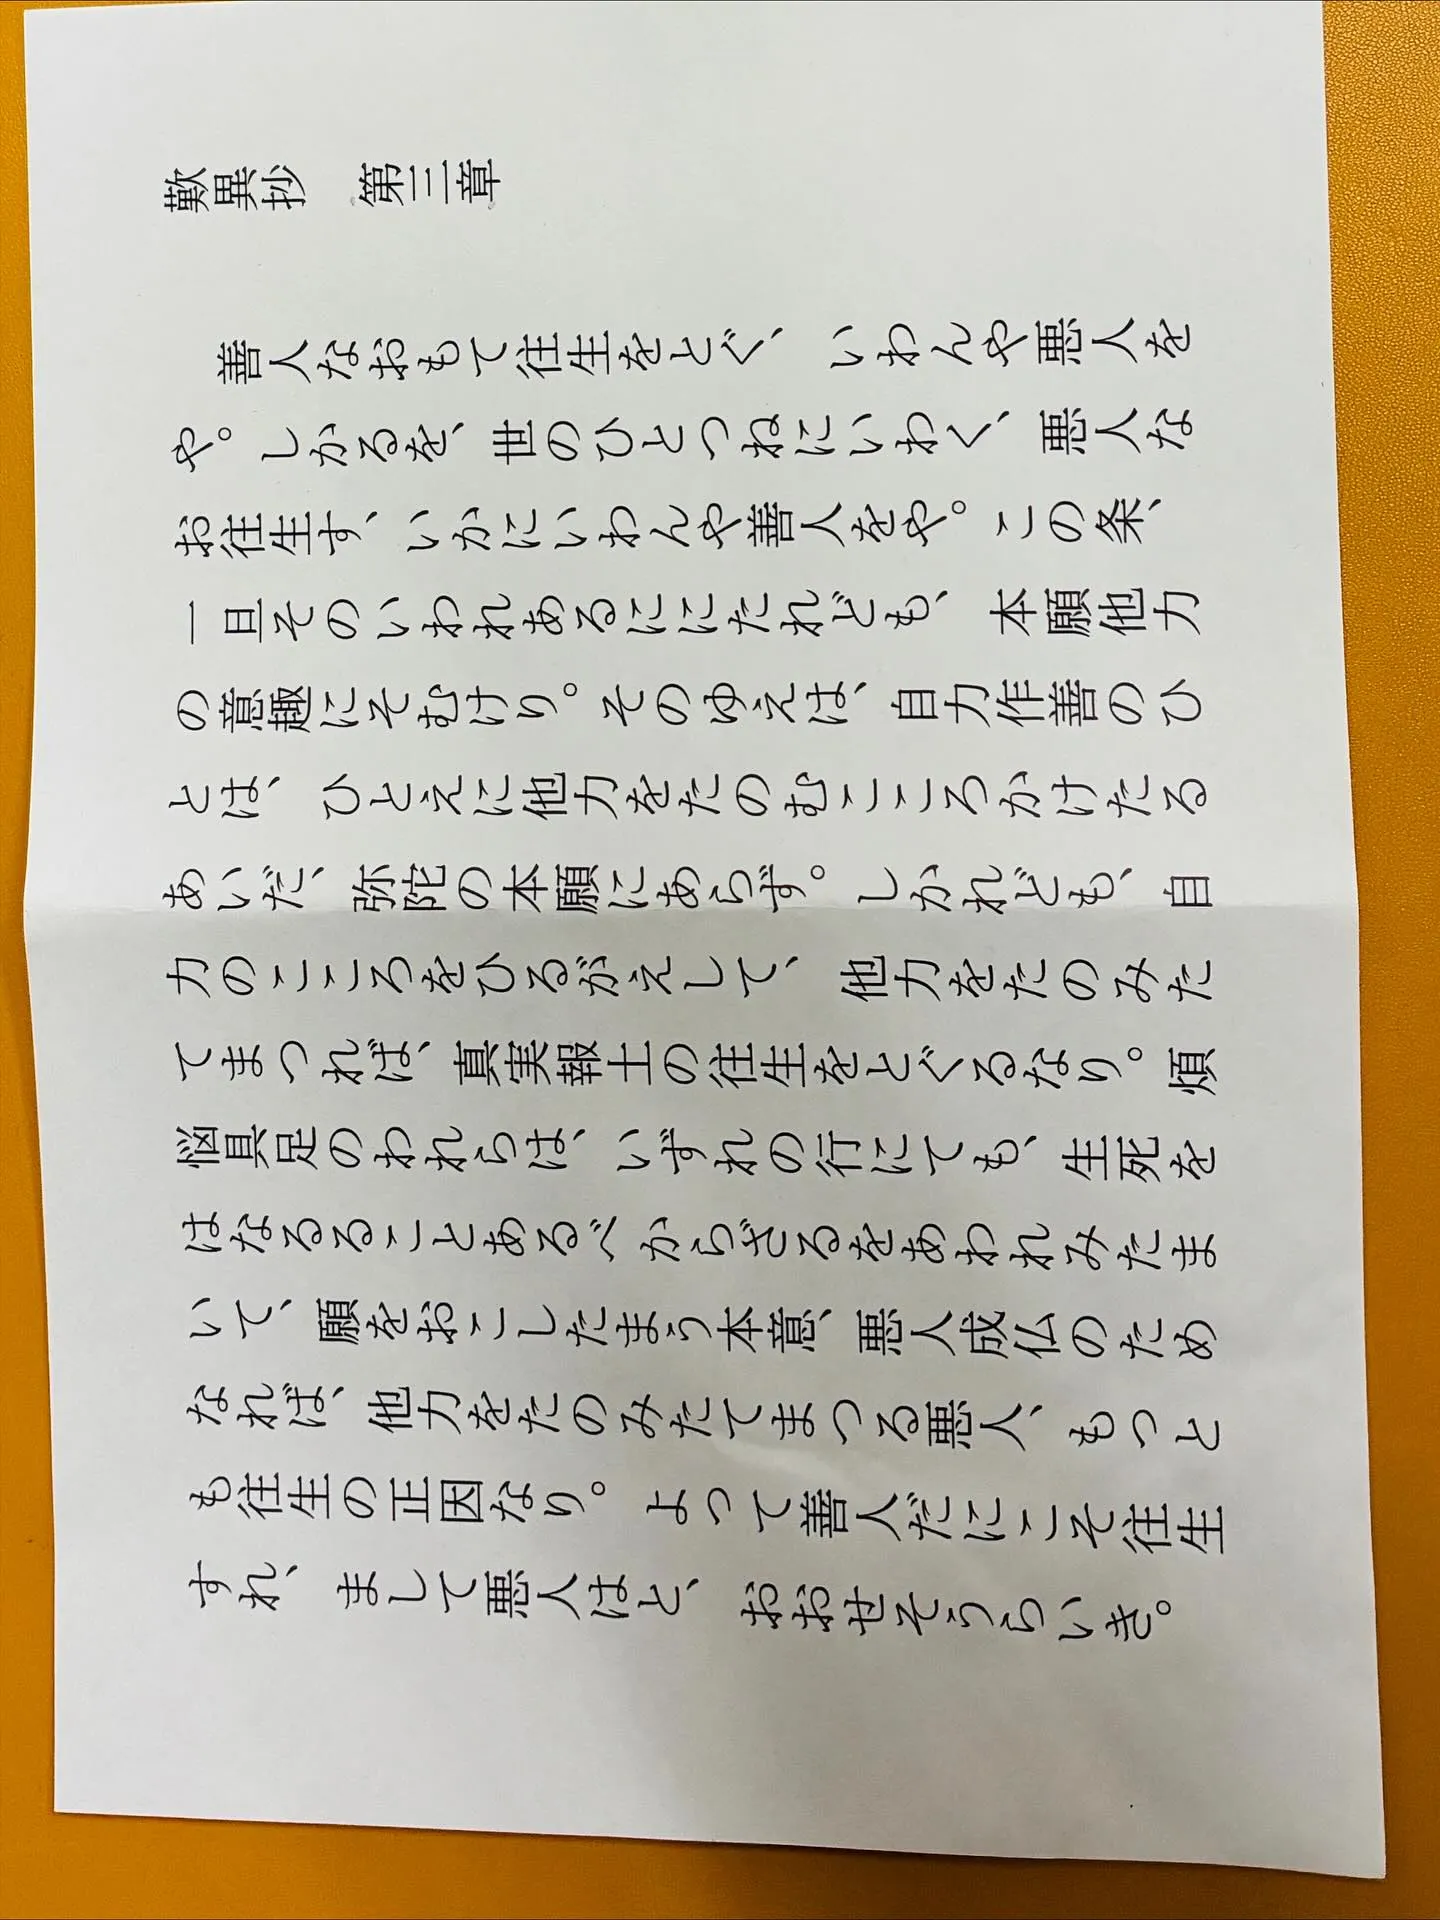 歎異抄　第三章
善人なおもて往生をとぐ、いわんや悪人を
や。しかるを、世のひとつねにいわく、悪人な
お往生す、いかにいわんや善人をや。この条、
一旦そのいわれあるににたれども、本願他力
の意趣にそむけり。そのゆえは、自力作善のひ
とは、ひとえに他力をたのむこころかけたる
あいだ、弥陀の本願にあらず。しかれども、自
力のこころをひるがえして、他力をたのみた
てまつれば、真実報土の往生をとぐるなり。煩
悩具足のわれらは、いずれの行にても、生死を
はなるることあるべからざるをあわれみたま
いて、願をおこしたまう本意、悪人成仏のため
なれば、他力をたのみたてまつる悪人、もっと
も往生の正因なり。よって善人だにこそ往生
すれ、まして悪人はと、おおせそうらいき。